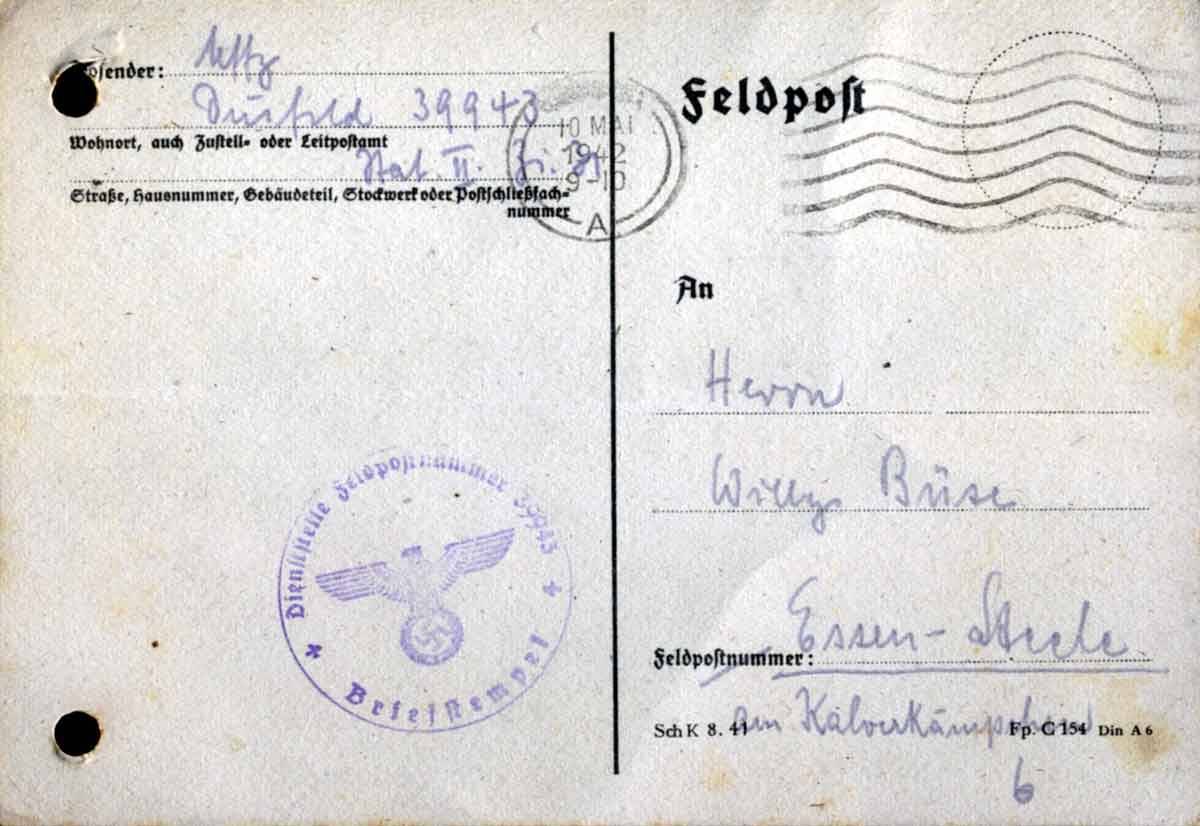 Absender: Uffz
Dusfeld 39943
Wohnort, auch Zustell- oder Leitpostamt
Stat. II. Zi.
Straße, Hausnummer, Gebäudeteil, Stockwerk oder Postschließfach-
nummer
10 MAI
1942
9-10
A
Feldpost
An
Herrn
Willy Büse
Essen-Steele
Feldpostnummer:
Am Kalverkämpchen
6
Sch K 8. 41
Fp. C 154 Din A 6
Dienststelle Feldpostnummer 39943
Briefstempel